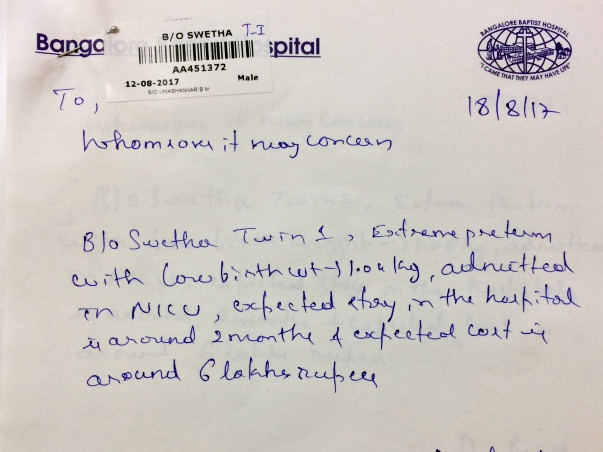 B/O SWETHA T-I
Banga spital
AA451372
12-08-2017 Male
S/O UMASHANKAR B M
BANGALORE BAPTIST HOSPITAL
"I CAME THAT THEY MAY HAVE LIFE"
To,
18/8/17
Whomsoever it may concern
B/o Swetha Twin 1, Extreme preterm
with low birth wt → 1.04 kg, admitted
in NICU, expected stay in the hospital
is around 2 months & expected cost is
around 6 lakhs rupees